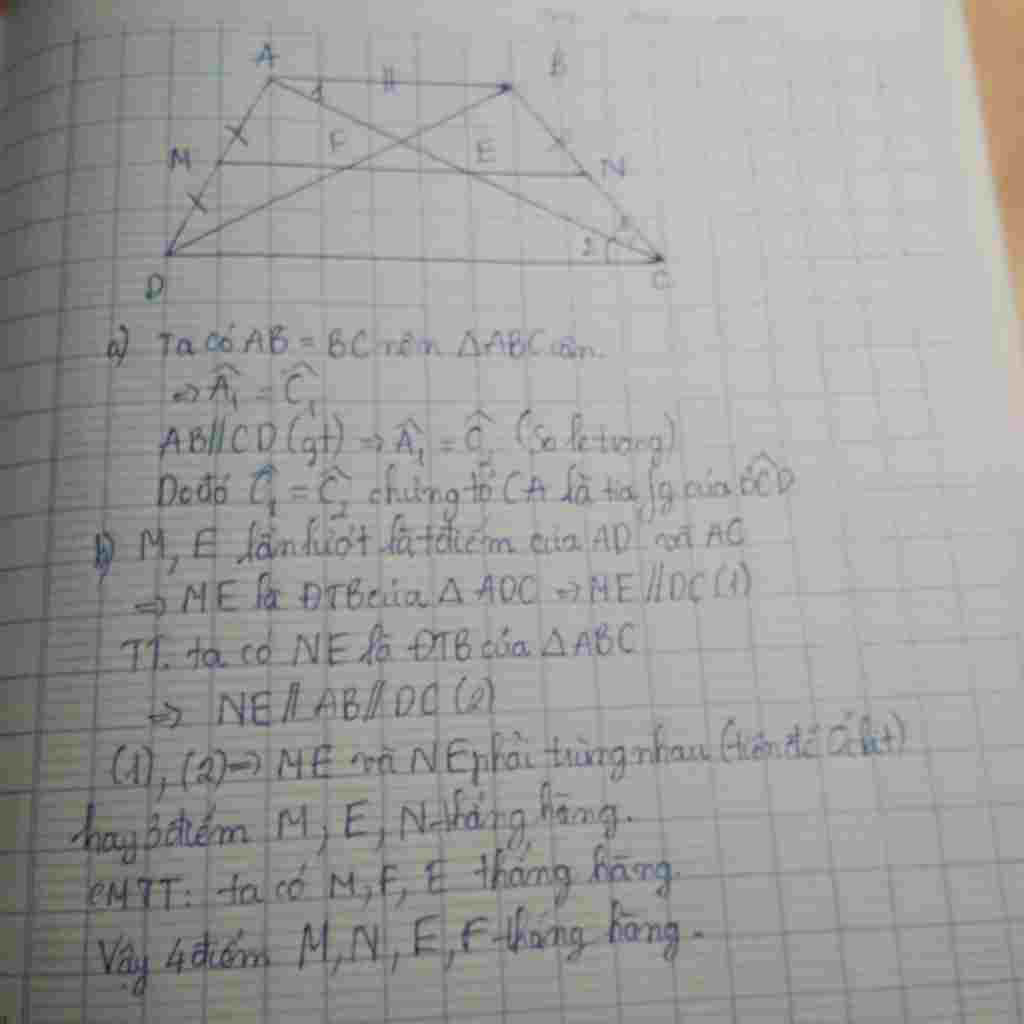 A
B
1
F
E
M
N
2
D
C
a) Ta có AB = BC nên ΔABC cân.
=> Â₁ = Ĉ₁
AB//CD (gt) => Â₁ = Ĉ₂ (So le trong)
Do đó Ĉ₁ = Ĉ₂ chứng tỏ CA là tia fg của BĈD
b) M, E lần lượt là tđiểm của AD và AC
=> ME là ĐTB của Δ ADC => ME // DC (1)
TT. ta có NE là ĐTB của ΔABC
=> NE // AB // DC (2)
(1), (2) => ME và NE phải trùng nhau (tiên đề Ơclit)
hay 3 điểm M, E, N thẳng hàng.
CMTT: ta có M, F, E thẳng hàng
Vậy 4 điểm M, N, E, F thẳng hàng.